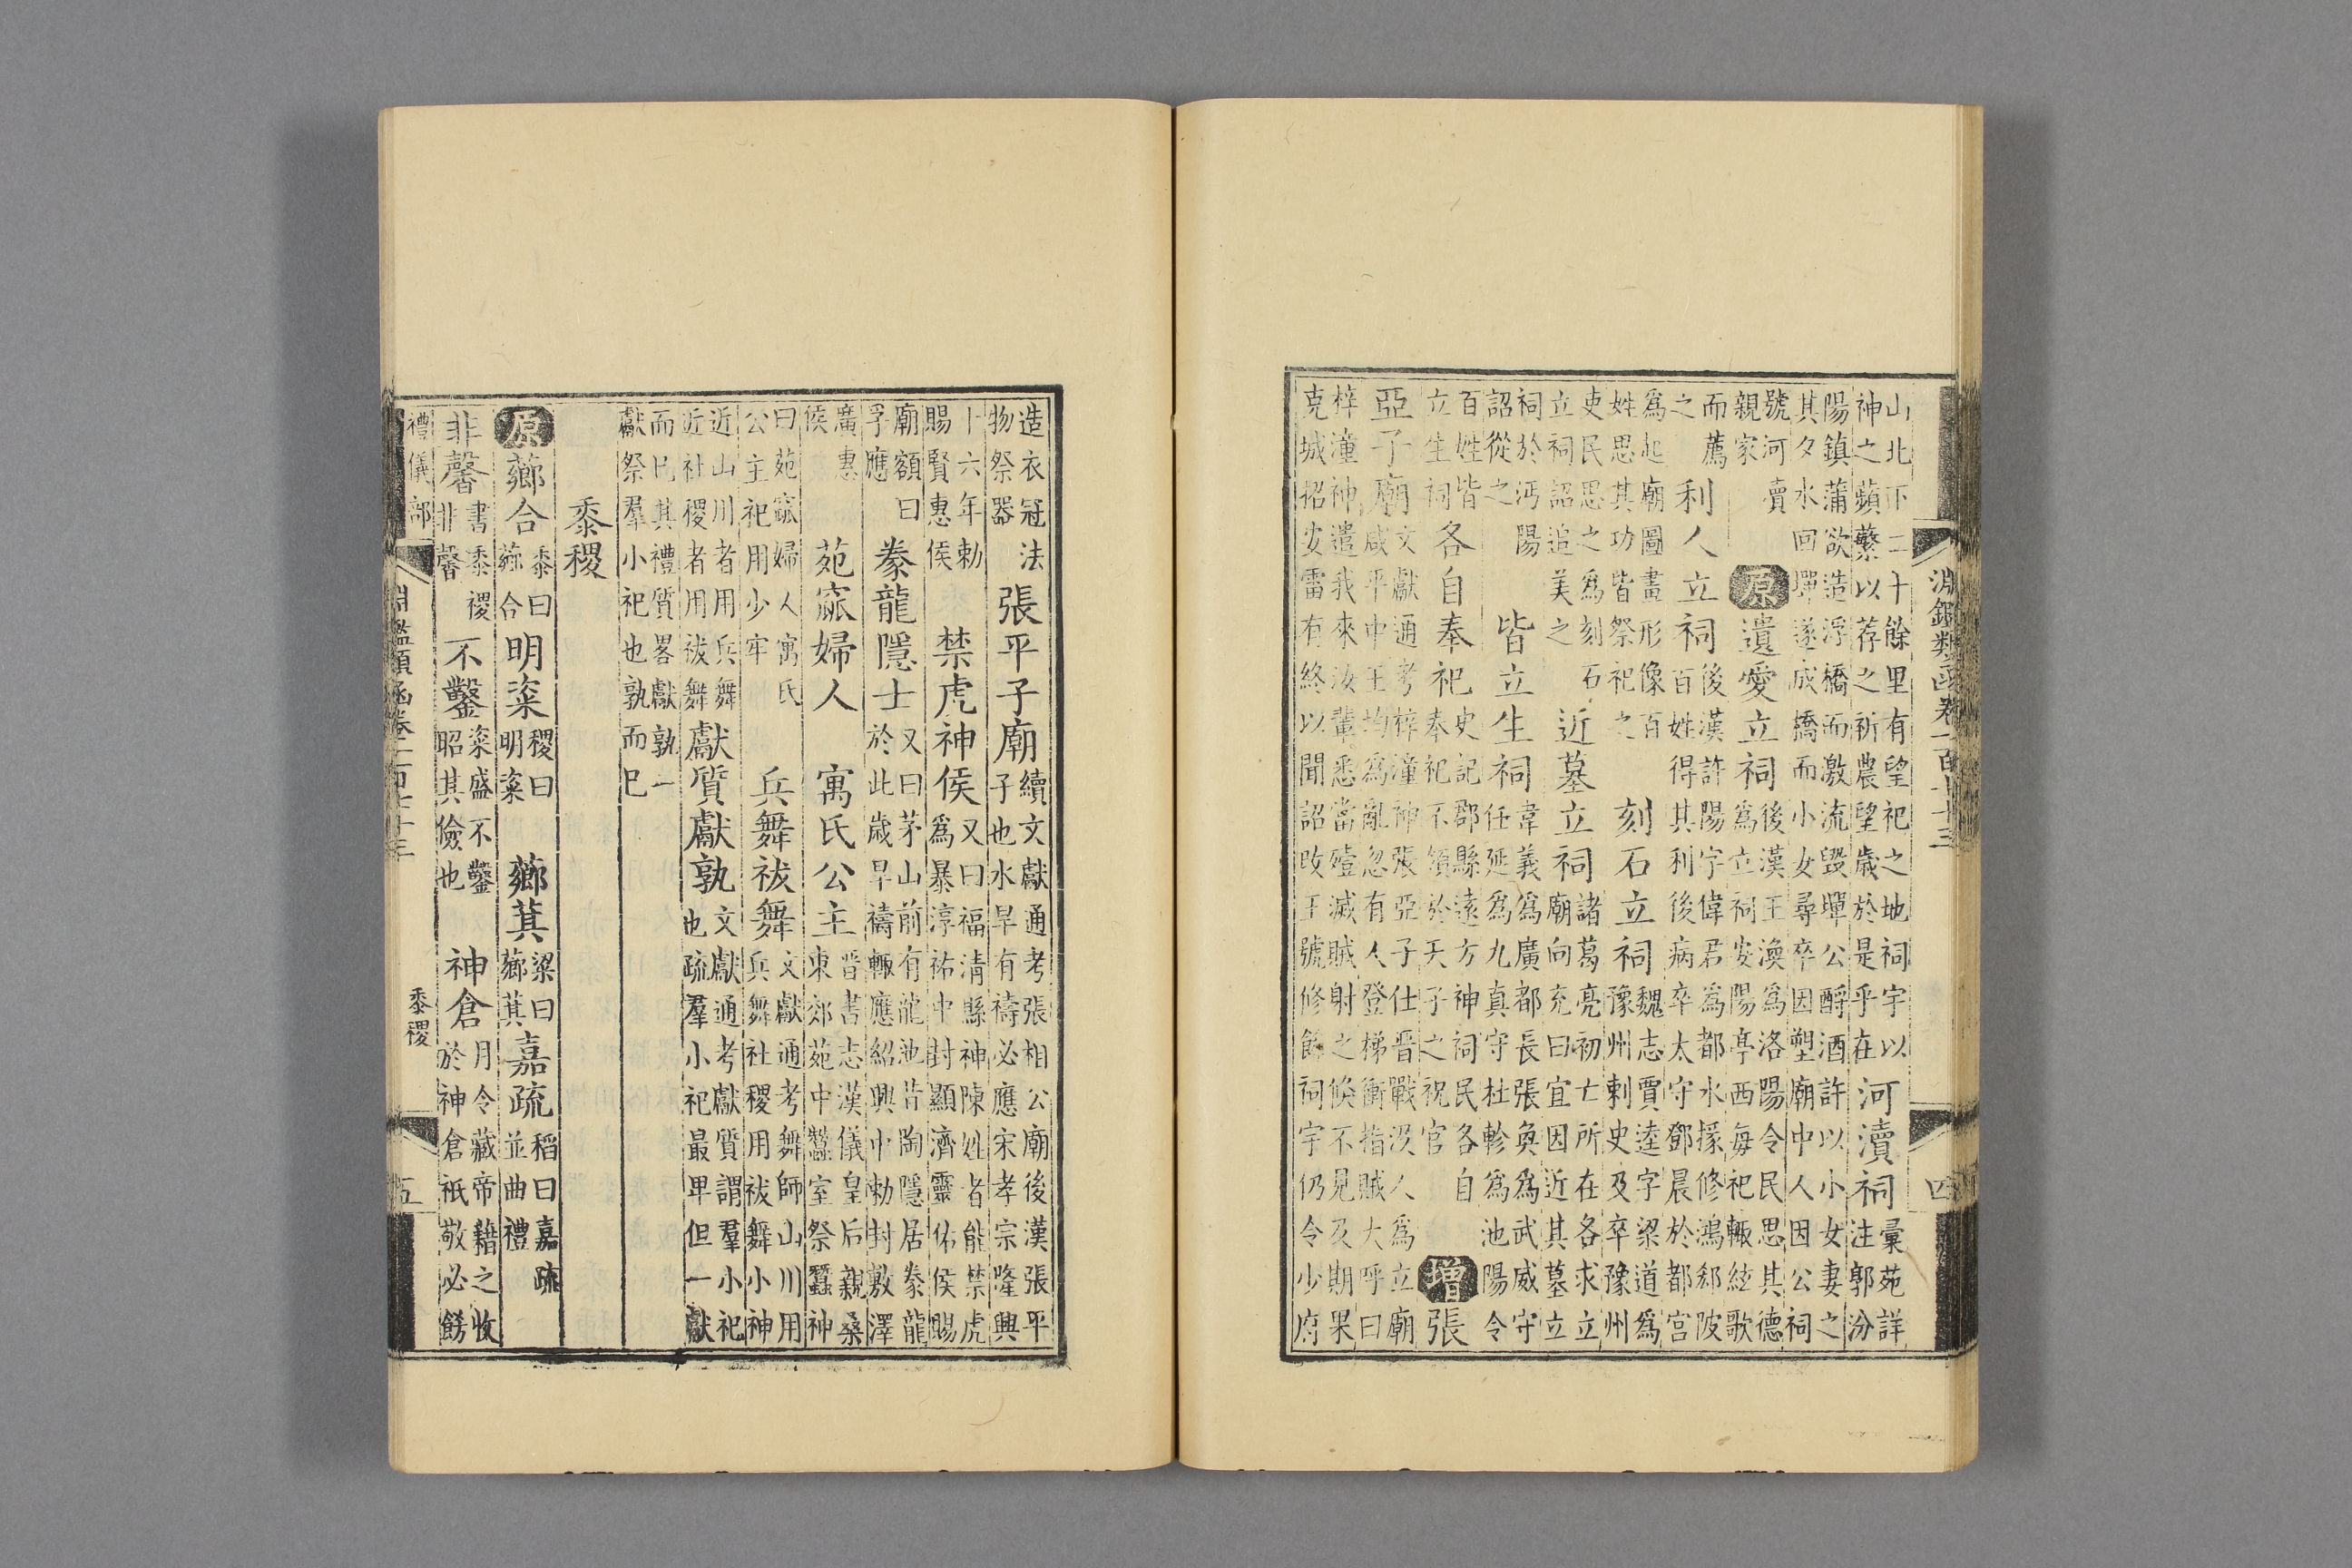 淵鑑類函卷一百七十三 四
山北下二十餘里有望祀之地祠宇以神之蘋蘩以荐之祈農望歲於是乎在河瀆祠彙苑詳注郭汾
陽鎮蒲欲造浮橋而激流毀墠公酹酒許以小女妻之其夕水回墠遂成橋而小女尋卒因塑廟中人因公祠
號河賣親家原遺愛立祠後漢王渙為洛陽令民思其德為立祠安陽亭西每祀輙絃歌
而薦之利人立祠後漢許陽字偉君為都水掾修鴻郤陂百姓得其利後病卒太守鄧晨於都宮
為起廟圖畫形像百姓思其功皆祭祀之刻石立祠魏志賈逵字梁道為豫州剌史及卒豫州
吏民思之為刻石立祠詔追美之近墓立祠諸葛亮初亡所在各求立廟向充曰宜因近其墓立
祠於沔陽詔從之皆立生祠韋義為廣都長張奐為武威守任延為九真守杜軫為池陽令
百姓皆立生祠各自奉祀史記郡縣遠方神祠民各自奉祀不領於天子之祝官增張
亞子廟文獻通考梓潼神張亞子仕晉戰沒人為立廟咸平中王均為亂忽有人登梯衝指賊大呼曰
梓潼神遣我來汝輩悉當殪滅賊射之倐不見及期果克城招安雷有終以聞詔改王號修餙祠宇仍令少府
造衣冠法物祭器張平子廟續文獻通考張相公廟後漢張平子也水旱有禱必應宋孝宗隆興
十六年勅賜賢惠侯禁虎神侯又曰福清縣神陳姓者能禁虎為暴淳祐中封顯濟靈佑侯賜
廟額曰孚應豢龍隱士又曰茅山前有龍池昔陶隱居豢龍於此歲旱禱輙應紹興中勅封敷澤
廣惠侯苑窳婦人寓氏公主晉書志漢儀皇后親桑東郊苑中蠶室祭蠶神
曰苑窳婦人寓氏公主祀用少牢兵舞祓舞文獻通考舞師山川用兵舞社稷用祓舞小神
近山川者用兵舞近社稷者用祓舞獻質獻孰文獻通考獻質謂羣小祀也疏羣小祀最卑但一獻
而已其禮質畧獻孰一獻祭羣小祀也孰而已
黍稷
原薌合黍曰薌合明粢稷曰明粢薌萁粱曰薌萁嘉疏稻曰嘉疏並曲禮
非馨書黍稷非馨不鑿粢盛不鑿昭其儉也神倉月令藏帝籍之收於神倉祗敬必餝
禮儀部 淵鑑類函卷一百七十三 黍稷 五